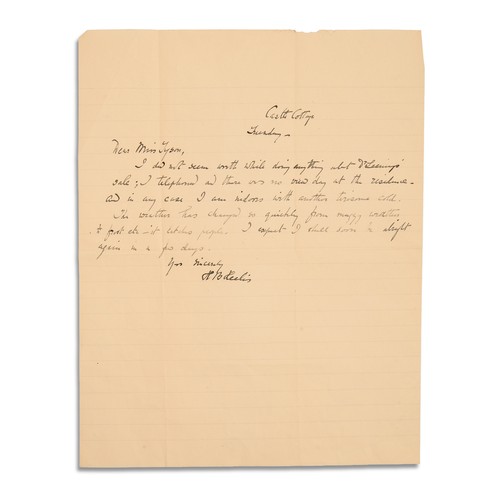 Castle Cottage
Tuesday -
Dear Miss Tyson,
I did not seem worth while doing anything about Dr
sale; I telephoned and there was no view day at the residence -
and in any case I am indoors with another tiresome cold.
The weather has changed so quickly from muggy
to frost etc - it catches people. I expect I shall soon be alright
again in a few days.
Yrs sincerely
H B Heelis